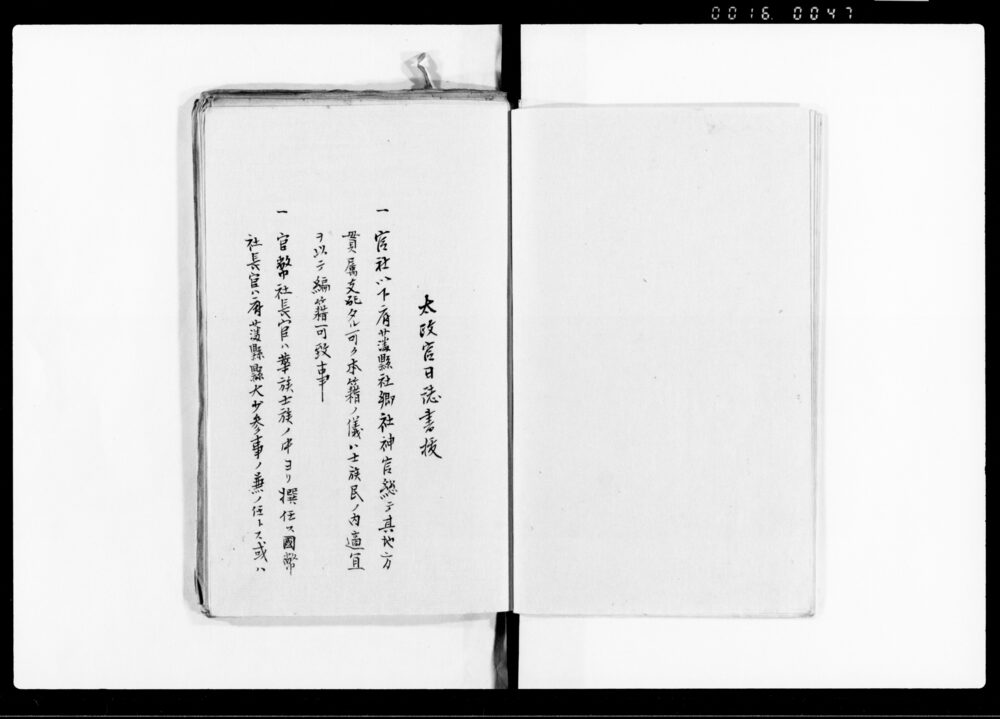 0016.0047
太政官日誌書抜
一 官社以下府藩縣社郷社神官総テ其地方
貫属支配タル可ク本籍ノ儀ハ士族民ノ内適宜
ヲ以テ編籍可致事
一 官幣社長官ハ華族士族ノ中ヨリ撰任ス國幣
社長官ハ府藩縣縣大少参事ノ兼ノ任トス或ハ